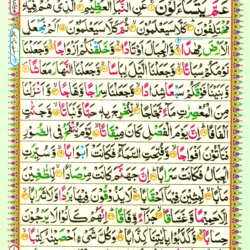 عَمَّ يَتَسَآءَلُوۡنَ‌ۚ عَنِ النَّبَاِ الۡعَظِيۡمِۙ الَّذِىۡ هُمۡ فِيۡهِ
مُخۡتَلِفُوۡنَؕ كَلَّا سَيَعۡلَمُوۡنَۙ ثُمَّ كَلَّا سَيَعۡلَمُوۡنَ اَلَمۡ نَجۡعَلِ
الۡاَرۡضَ مِهٰدًاۙ وَّالۡجِبَالَ اَوۡتَادًاۙ وَّخَلَقۡنٰكُمۡ اَزۡوَاجًاۙ وَّجَعَلۡنَا
نَوۡمَكُمۡ سُبَاتًاۙ وَّجَعَلۡنَا الَّيۡلَ لِبَاسًاۙ وَّجَعَلۡنَا النَّهَارَ مَعَاشًا
وَّبَنَيۡنَا فَوۡقَكُمۡ سَبۡعًا شِدَادًاۙ وَّجَعَلۡنَا سِرَاجًا وَّهَّاجًاۙ وَّاَنۡزَلۡنَا
مِنَ الۡمُعۡصِرٰتِ مَآءً ثَجَّاجًاۙ لِّنُخۡرِجَ بِهٖ حَبًّا وَّنَبَاتًاۙ وَّجَنّٰتٍ
اَلۡفَافًاؕ اِنَّ يَوۡمَ الۡفَصۡلِ كَانَ مِيۡقَاتًاۙ يَّوۡمَ يُنۡفَخُ فِى الصُّوۡرِ
فَتَاۡتُوۡنَ اَفۡوَاجًاۙ وَّفُتِحَتِ السَّمَآءُ فَكَانَتۡ اَبۡوَابًاۙ وَّسُيِّرَتِ
الۡجِبَالُ فَكَانَتۡ سَرَابًاؕ اِنَّ جَهَنَّمَ كَانَتۡ مِرۡصَادًاۙ لِّلطّٰغِيۡنَ
مَاٰبًاۙ لّٰبِثِيۡنَ فِيۡهَاۤ اَحۡقَابًا‌ۚ لَا يَذُوۡقُوۡنَ فِيۡهَا بَرۡدًا وَّلَا شَرَابًاۙ
اِلَّا حَمِيۡمًا وَّغَسَّاقًاۙ جَزَآءً وِّفَاقًاؕ اِنَّهُمۡ كَانُوۡا لَا يَرۡجُوۡنَ
حِسَابًاۙ وَّكَذَّبُوۡا بِاٰيٰتِنَا كِذَّابًاؕ وَكُلَّ شَىۡءٍ اَحۡصَيۡنٰهُ كِتٰبًاۙ